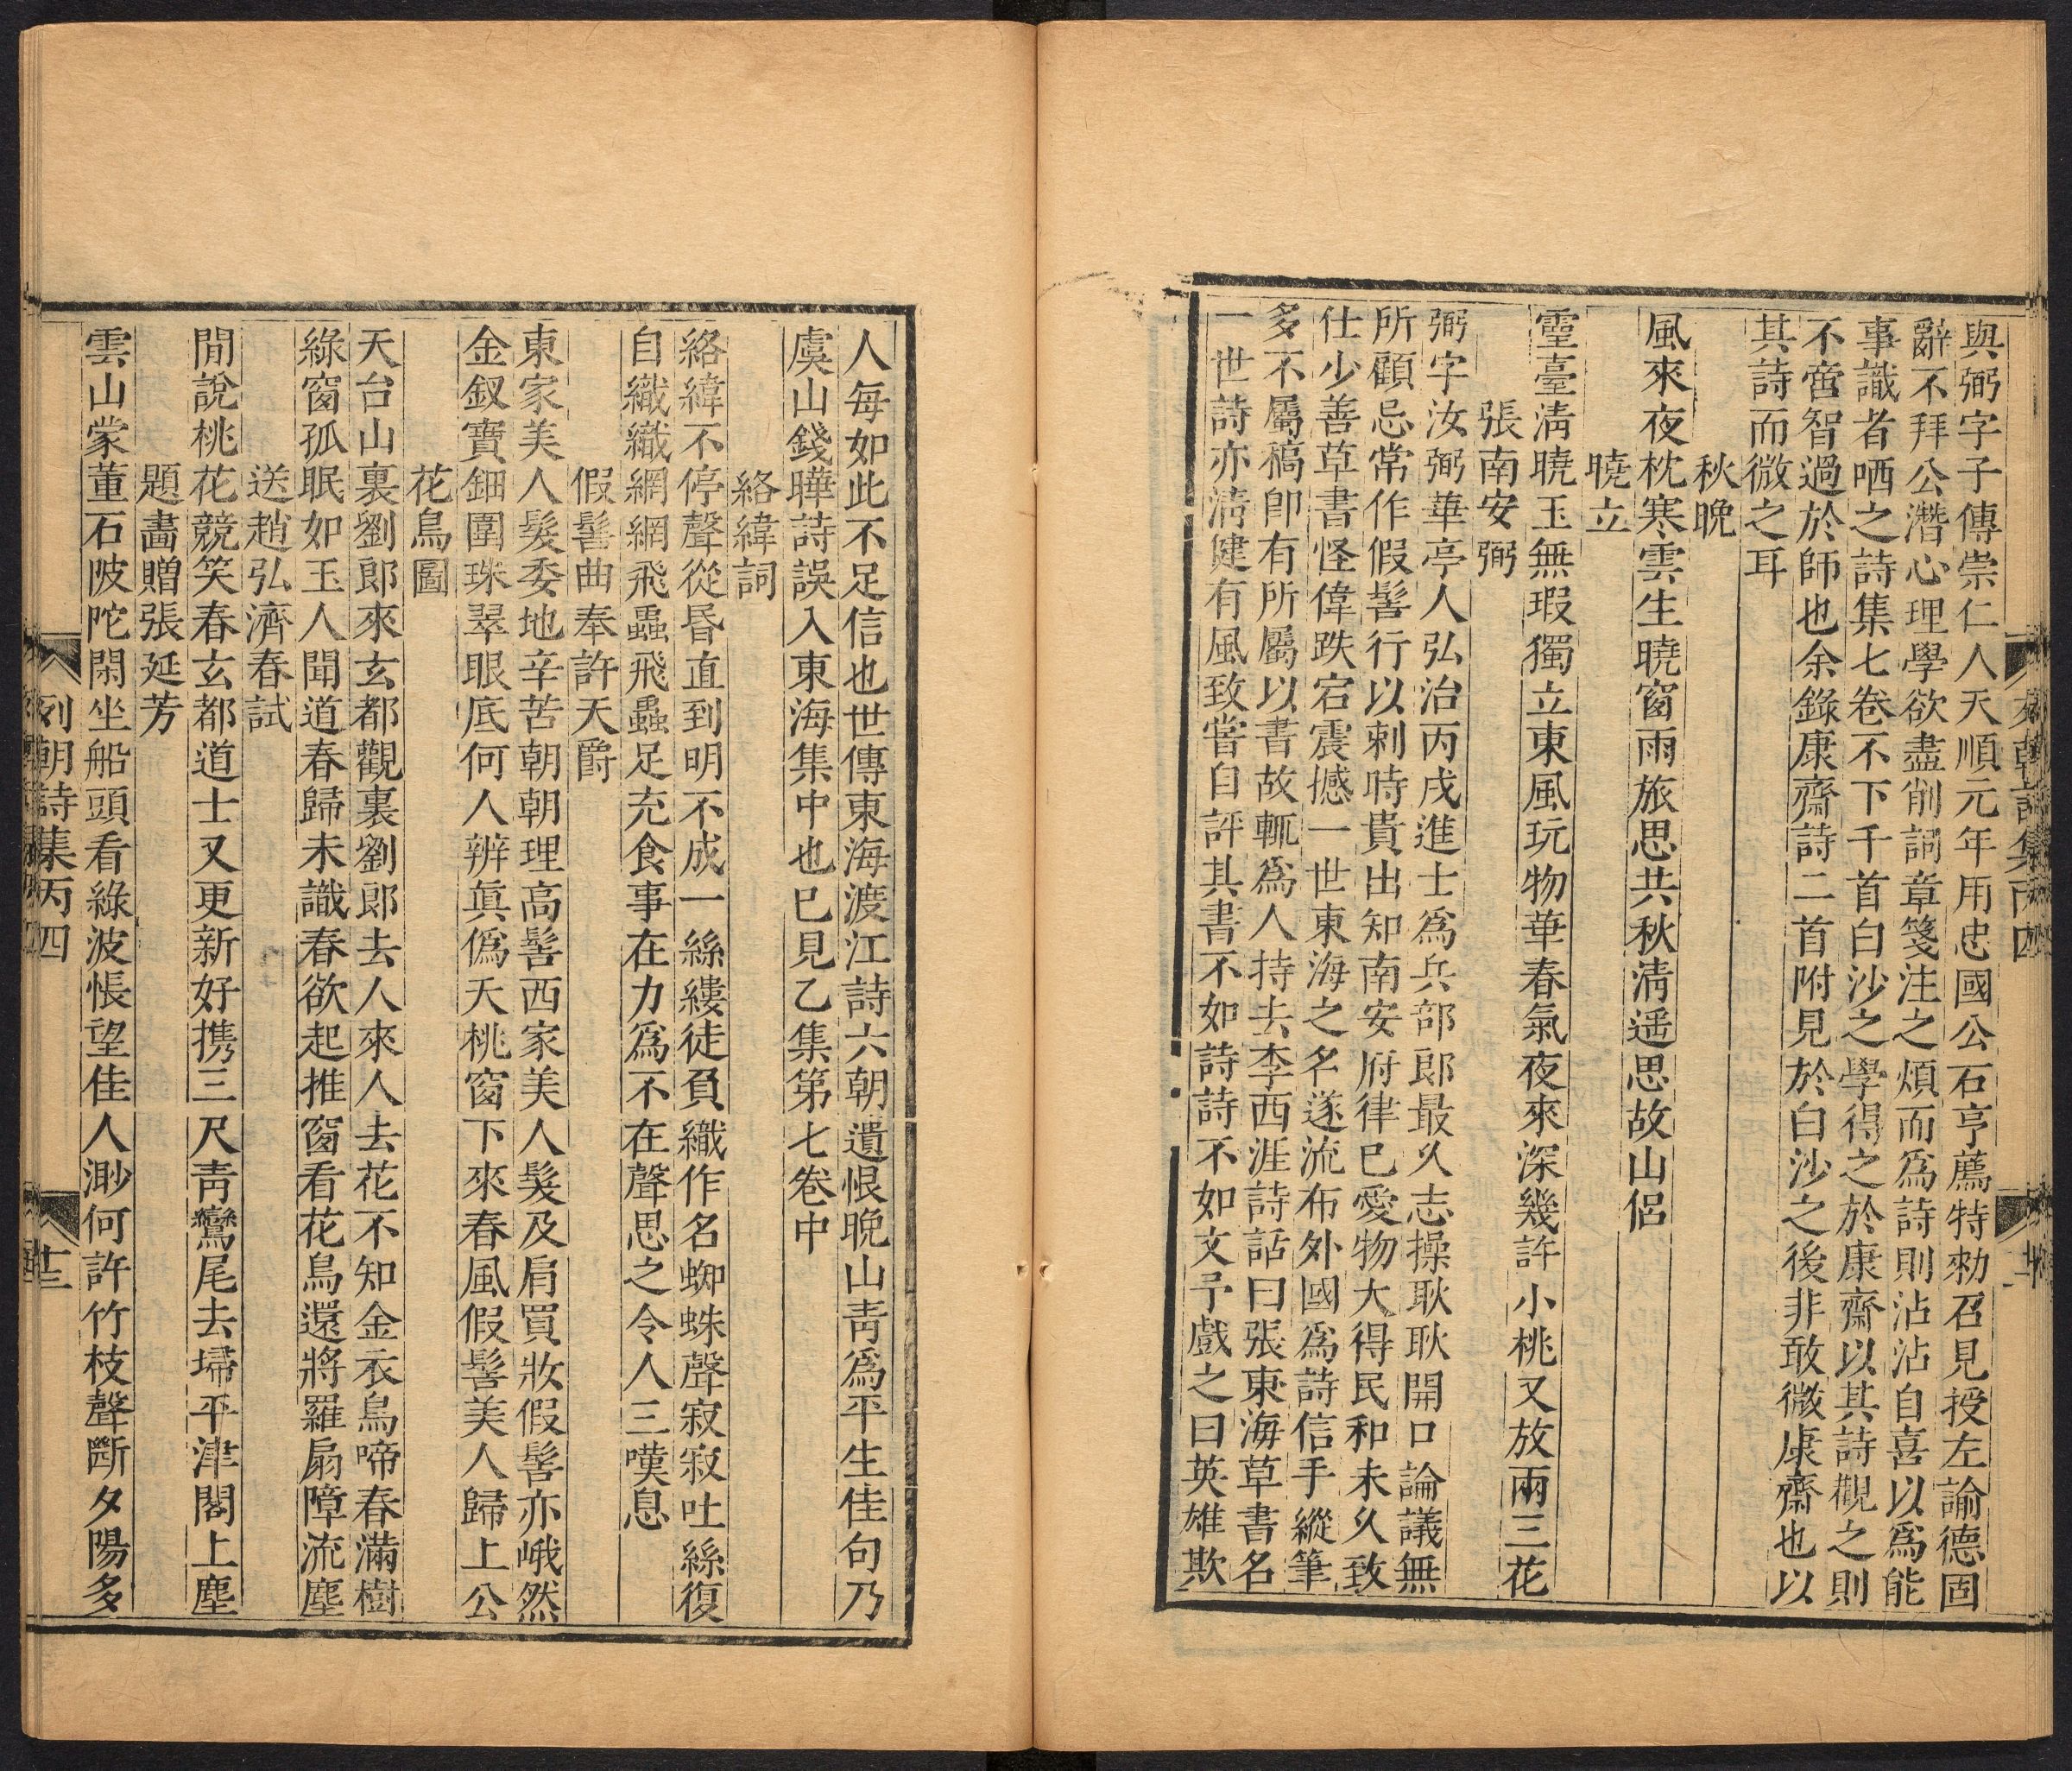 與弼字子傳崇仁人天順元年用忠國公石亨薦特勑召見授左諭德固
辭不拜公潛心理學欲盡削詞章箋注之煩而爲詩則沾沾自喜以爲能
事識者哂之詩集七卷不下千首白沙之學得之於康齋以其詩觀之則
不啻智過於師也余錄康齋詩二首附見於白沙之後非敢微康齋也以
其詩而微之耳
秋晩
風來夜枕寒雲生曉窗雨旅思共秋淸遥思故山侶
曉立
霊臺淸曉玉無瑕獨立東風玩物華春氣夜來深幾許小桃又放兩三花
張南安弼
弼字汝弼華亭人弘治丙戌進士爲兵部郎最久志操耿耿開口論議無
所顧忌常作假髻行以刺時貴出知南安府律巳愛物大得民和未久致
仕少善草書怪偉跌宕震撼一世東海之名遂流布外國爲詩信手縱筆
多不屬稿卽有所屬以書故輒爲人持去李西涯詩話曰張東海草書名
一世詩亦淸健有風致嘗自評其書不如詩詩不如文予戲之曰英雄欺
人每如此不足信也世傳東海渡江詩六朝遺恨晩山靑爲平生佳句乃
虞山錢曄詩誤入東海集中也巳見乙集第七卷中
絡緯詞
絡緯不停聲從昏直到明不成一絲縷徒負織作名蜘蛛聲寂寂吐絲復
自織織網網飛蟲飛蟲足充食事在力爲不在聲思之令人三嘆息
假髻曲奉許天爵
東家美人髮委地辛苦朝朝理高髻西家美人髮及肩買妝假髻亦峨然
金釵寶鈿圍珠翠眼底何人辨眞僞天桃窗下來春風假髻美人歸上公
花鳥圖
天台山裏劉郎來玄都觀裏劉郎去人來人去花不知金衣鳥啼春滿樹
綠窗孤眠如玉人聞道春歸未識春欲起推窗看花鳥還將羅扇障流塵
送趙弘濟春試
閒說桃花競笑春玄都道士又更新好携三尺靑鸞尾去埽平津閣上塵
題畵贈張延芳
雲山蒙董石陂陀閑坐船頭看綠波悵望佳人渺何許竹枝聲斷夕陽多
列朝詩集丙四
十二